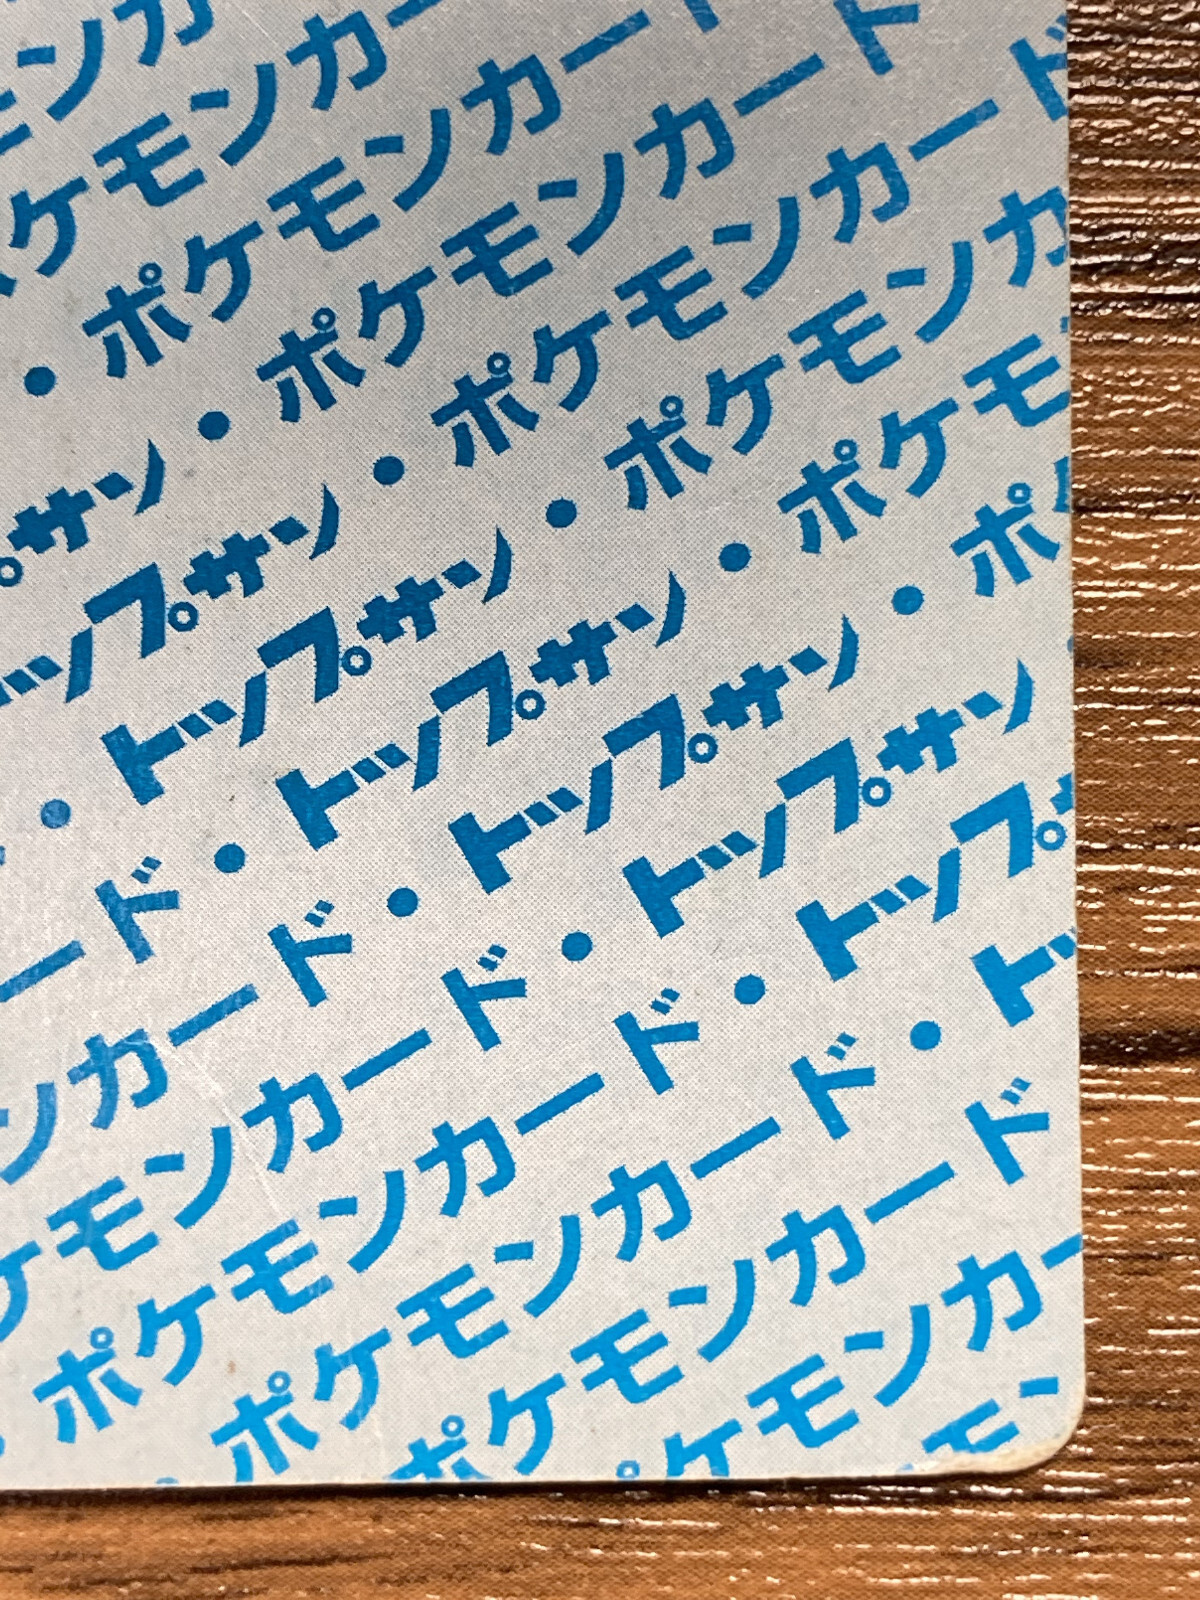 モンカ
ケモンカー
・ポケモンカード
サン・ポケモンカード
ップサン・ポケモンカード
・トップサン・ポケモンカ
ード・トップサン・ポケモ
ンカード・トップサン・ポ
ケモンカード・トップサン・
ポケモンカード・トップ
ポケモンカード・トッ
ポケモンカード
ケモンカー
モン